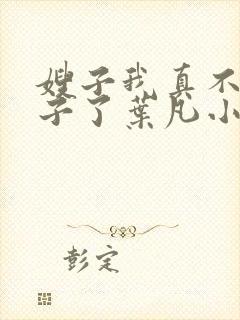 嫂子我真不
子了葉凡小
彭定